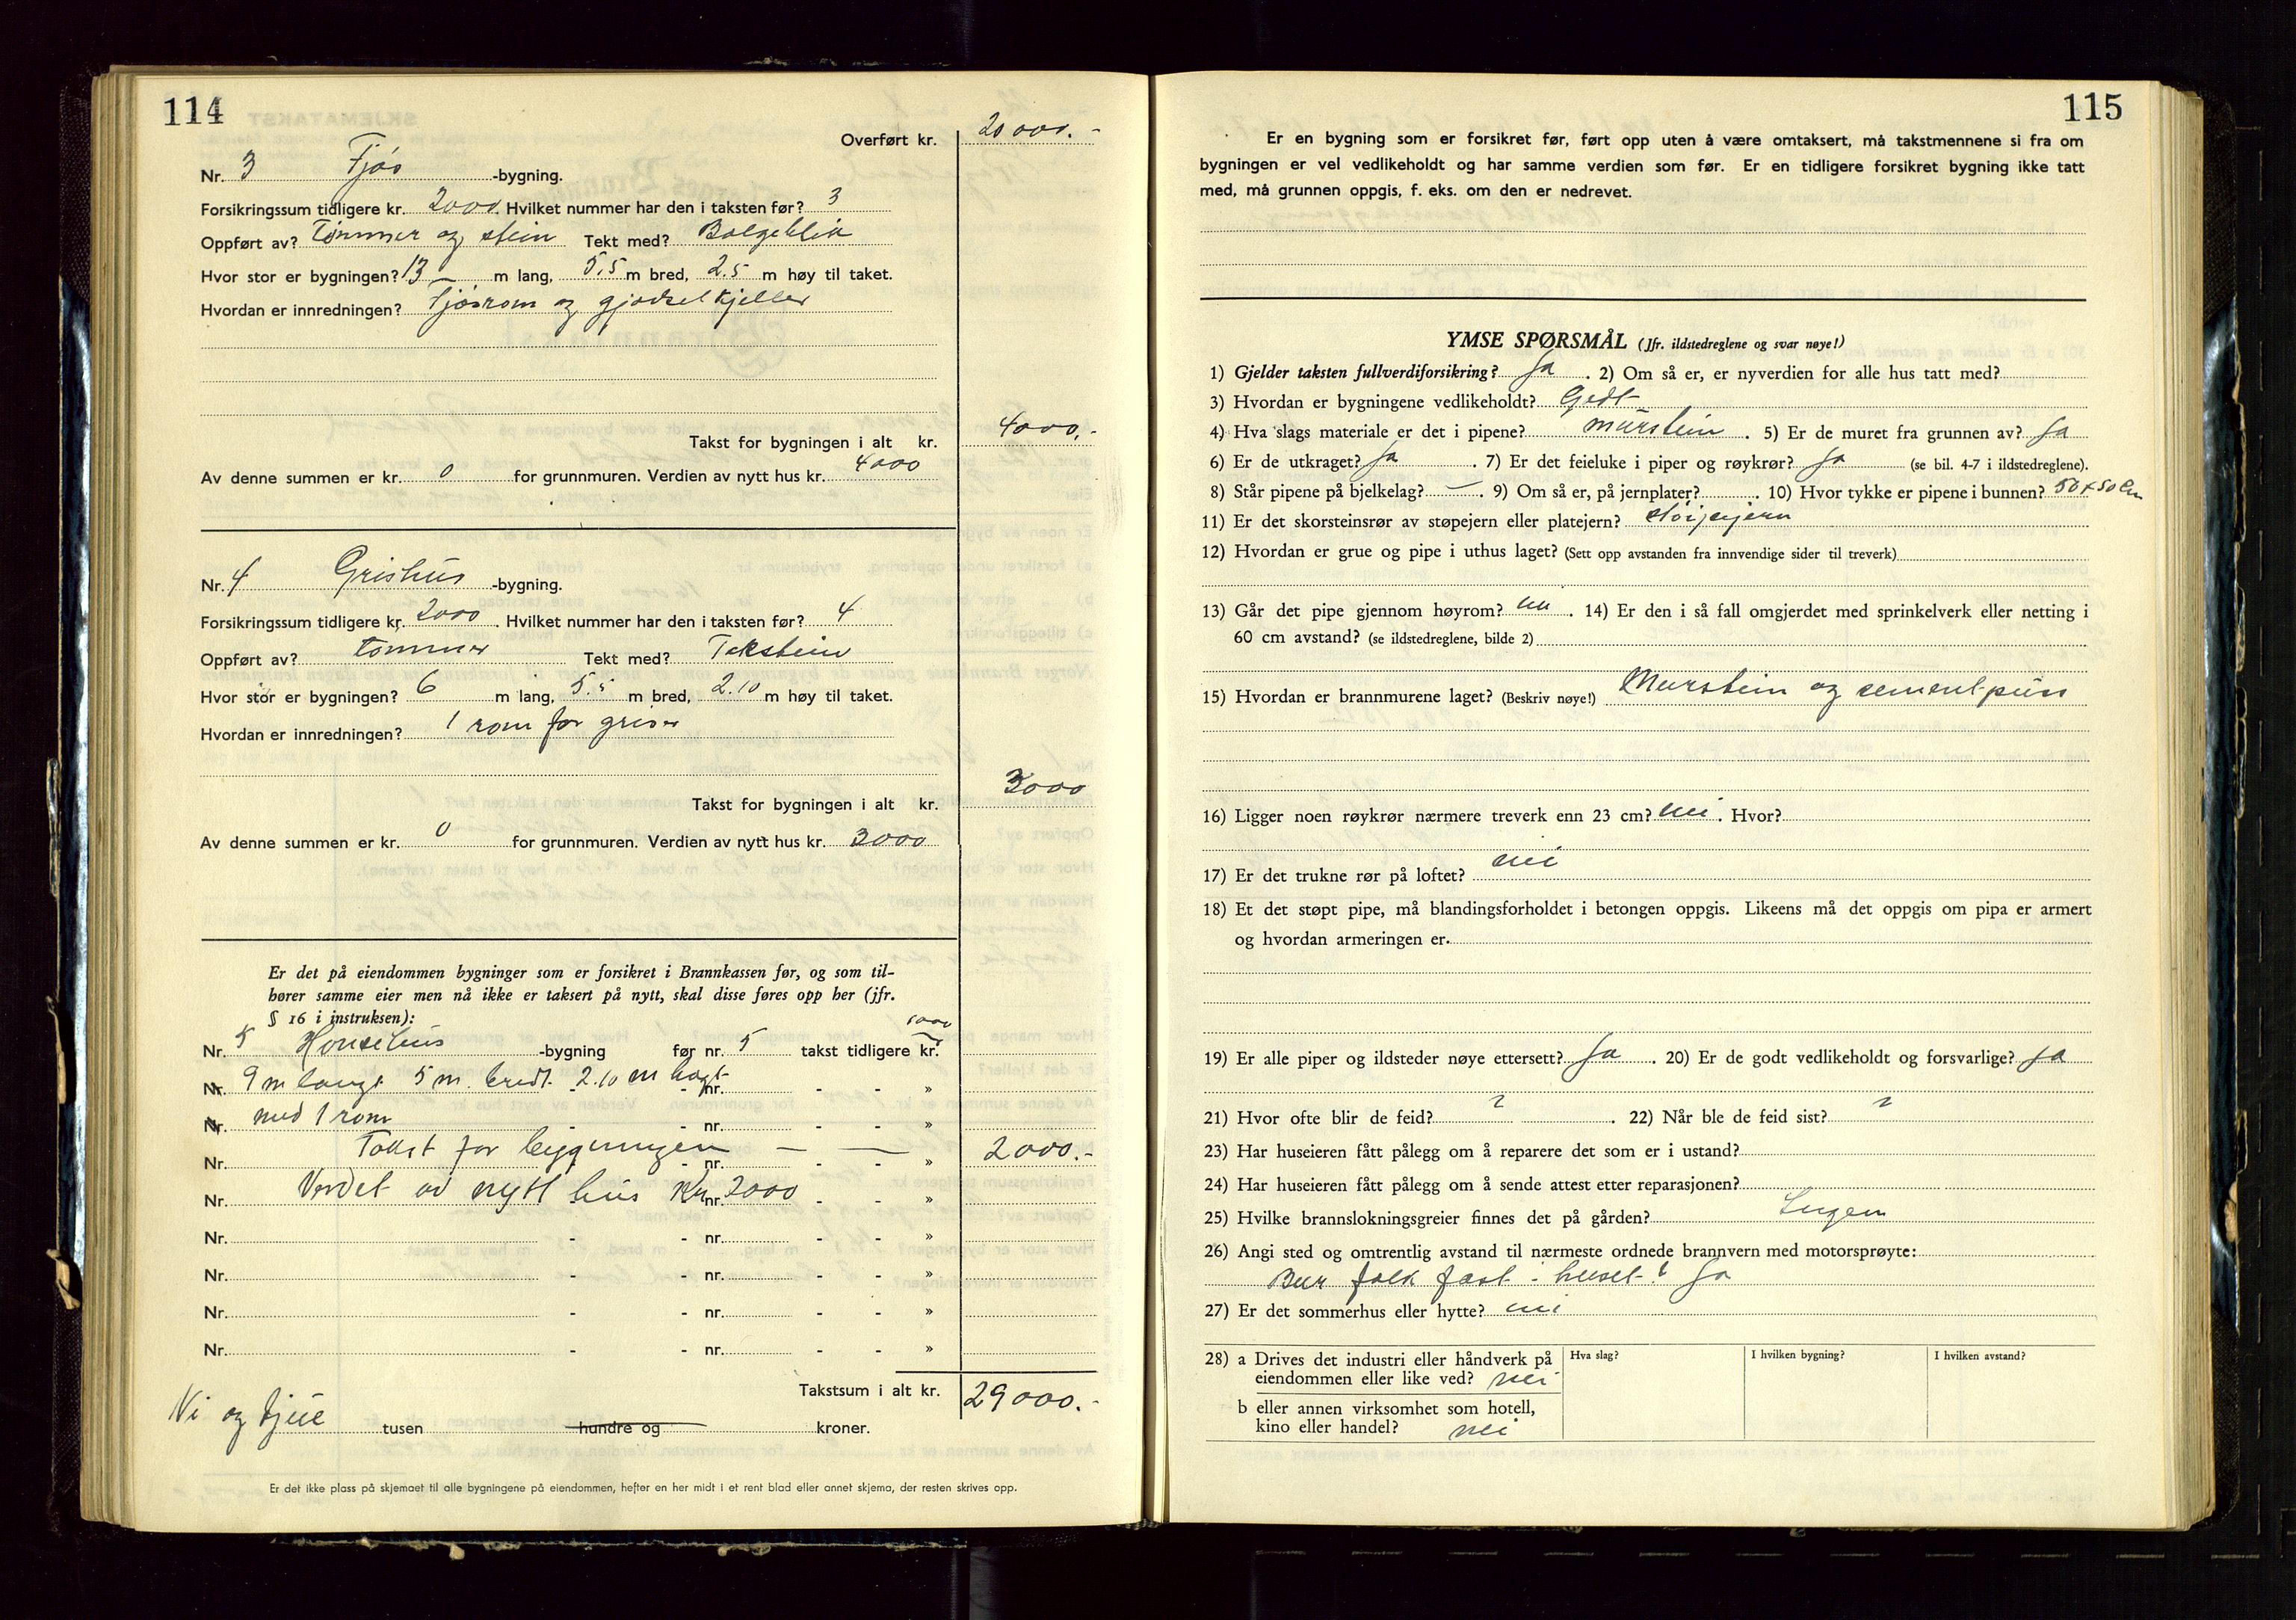 114
Overført kr. 20 000.-
Nr. 3 Fjøs -bygning.
Forsikringssum tidligere kr. 2000. Hvilket nummer har den i taksten før? 3
Oppført av? Tømmer og stein Tekt med? Bølgeblik
Hvor stor er bygningen? 13 – m lang, 5,5 m bred, 2.5 m høy til taket.
Hvordan er innredningen? Fjøsrom og gjødselkjeller
Takst for bygningen i alt kr. 4000,-
Av denne summen er kr. 0 for grunnmuren. Verdien av nytt hus kr. 4000
Nr. 4 Grishus -bygning.
Forsikringssum tidligere kr. 2000. Hvilket nummer har den i taksten før? 4
Oppført av? tømmer Tekt med? Takstein
Hvor stor er bygningen? 6 m lang, 5.5 m bred, 2.10 m høy til taket.
Hvordan er innredningen? 1 rom for griser
Takst for bygningen i alt kr. 3000
Av denne summen er kr. 0 for grunnmuren. Verdien av nytt hus kr. 3000
Er det på eiendommen bygninger som er forsikret i Brannkassen før, og som til-
hører samme eier men nå ikke er taksert på nytt, skal disse føres opp her (jfr.
§ 16 i instruksen):
Nr. 5 Hønsehus -bygning før nr. 5 takst tidligere kr. 1000
Nr. 9 m langt 5 m. bredt 2.10 m høgt - nr. - - »
Nr. med 1 rom - - nr. - - »
Nr. Takst for byggningen - nr. - - » 2000.-
Nr. Verdet av nytt hus Kr. nr. 2000 - - »
Nr. - - nr. - - »
Nr. - - nr. - - »
Nr. - - nr. - - »
Nr. - - nr. - - »
Takstsum i alt kr. 29000.-
Ni og tjue tusen hundre og kroner.
Er det ikke plass på skjemaet til alle bygningene på eiendommen, hefter en her midt i et rent blad eller annet skjema, der resten skrives opp.
115
Er en bygning som er forsikret før, ført opp uten å være omtaksert, må takstmennene si fra om
bygningen er vel vedlikeholdt og har samme verdien som før. Er en tidligere forsikret bygning ikke tatt
med, må grunnen oppgis, f. eks. om den er nedrevet.
YMSE SPØRSMÅL (Jfr. ildstedreglene og svar nøye!)
1) Gjelder taksten fullverdiforsikring? Ja. 2) Om så er, er nyverdien for alle hus tatt med?
3) Hvordan er bygningene vedlikeholdt? Godt
4) Hva slags materiale er det i pipene? murstein. 5) Er de muret fra grunnen av? Ja
6) Er de utkraget? Ja. 7) Er det feieluke i piper og røykrør? Ja (se bil. 4-7 i ildstedreglene).
8) Står pipene på bjelkelag? –. 9) Om så er, på jernplater? . 10) Hvor tykke er pipene i bunnen? 50 x 50 Cm
11) Er det skorsteinsrør av støpejern eller platejern? støipejern
12) Hvordan er grue og pipe i uthus laget? (Sett opp avstanden fra innvendige sider til treverk)
13) Går det pipe gjennom høyrom? nei. 14) Er den i så fall omgjerdet med sprinkelverk eller netting i
60 cm avstand? (se ildstedreglene, bilde 2)
15) Hvordan er brannmurene laget? (Beskriv nøye!) Murstein og sementpuss
16) Ligger noen røykrør nærmere treverk enn 23 cm? nei. Hvor?
17) Er det trukne rør på loftet? nei
18) Et det støpt pipe, må blandingsforholdet i betongen oppgis. Likeens må det oppgis om pipa er armert
og hvordan armeringen er.
19) Er alle piper og ildsteder nøye ettersett? Ja. 20) Er de godt vedlikeholdt og forsvarlige? Ja
21) Hvor ofte blir de feid? ? . 22) Når ble de feid sist? ?
23) Har huseieren fått pålegg om å reparere det som er i ustand?
24) Har huseieren fått pålegg om å sende attest etter reparasjonen?
25) Hvilke brannslokningsgreier finnes det på gården? Ingen
26) Angi sted og omtrentlig avstand til nærmeste ordnede brannvern med motorsprøyte:
Bur folk fast i huset? Ja
27) Er det sommerhus eller hytte? nei
28) a Drives det industri eller håndverk på
eiendommen eller like ved? nei
Hva slag? I hvilken bygning? I hvilken avstand?
b eller annen virksomhet som hotell,
kino eller handel? nei